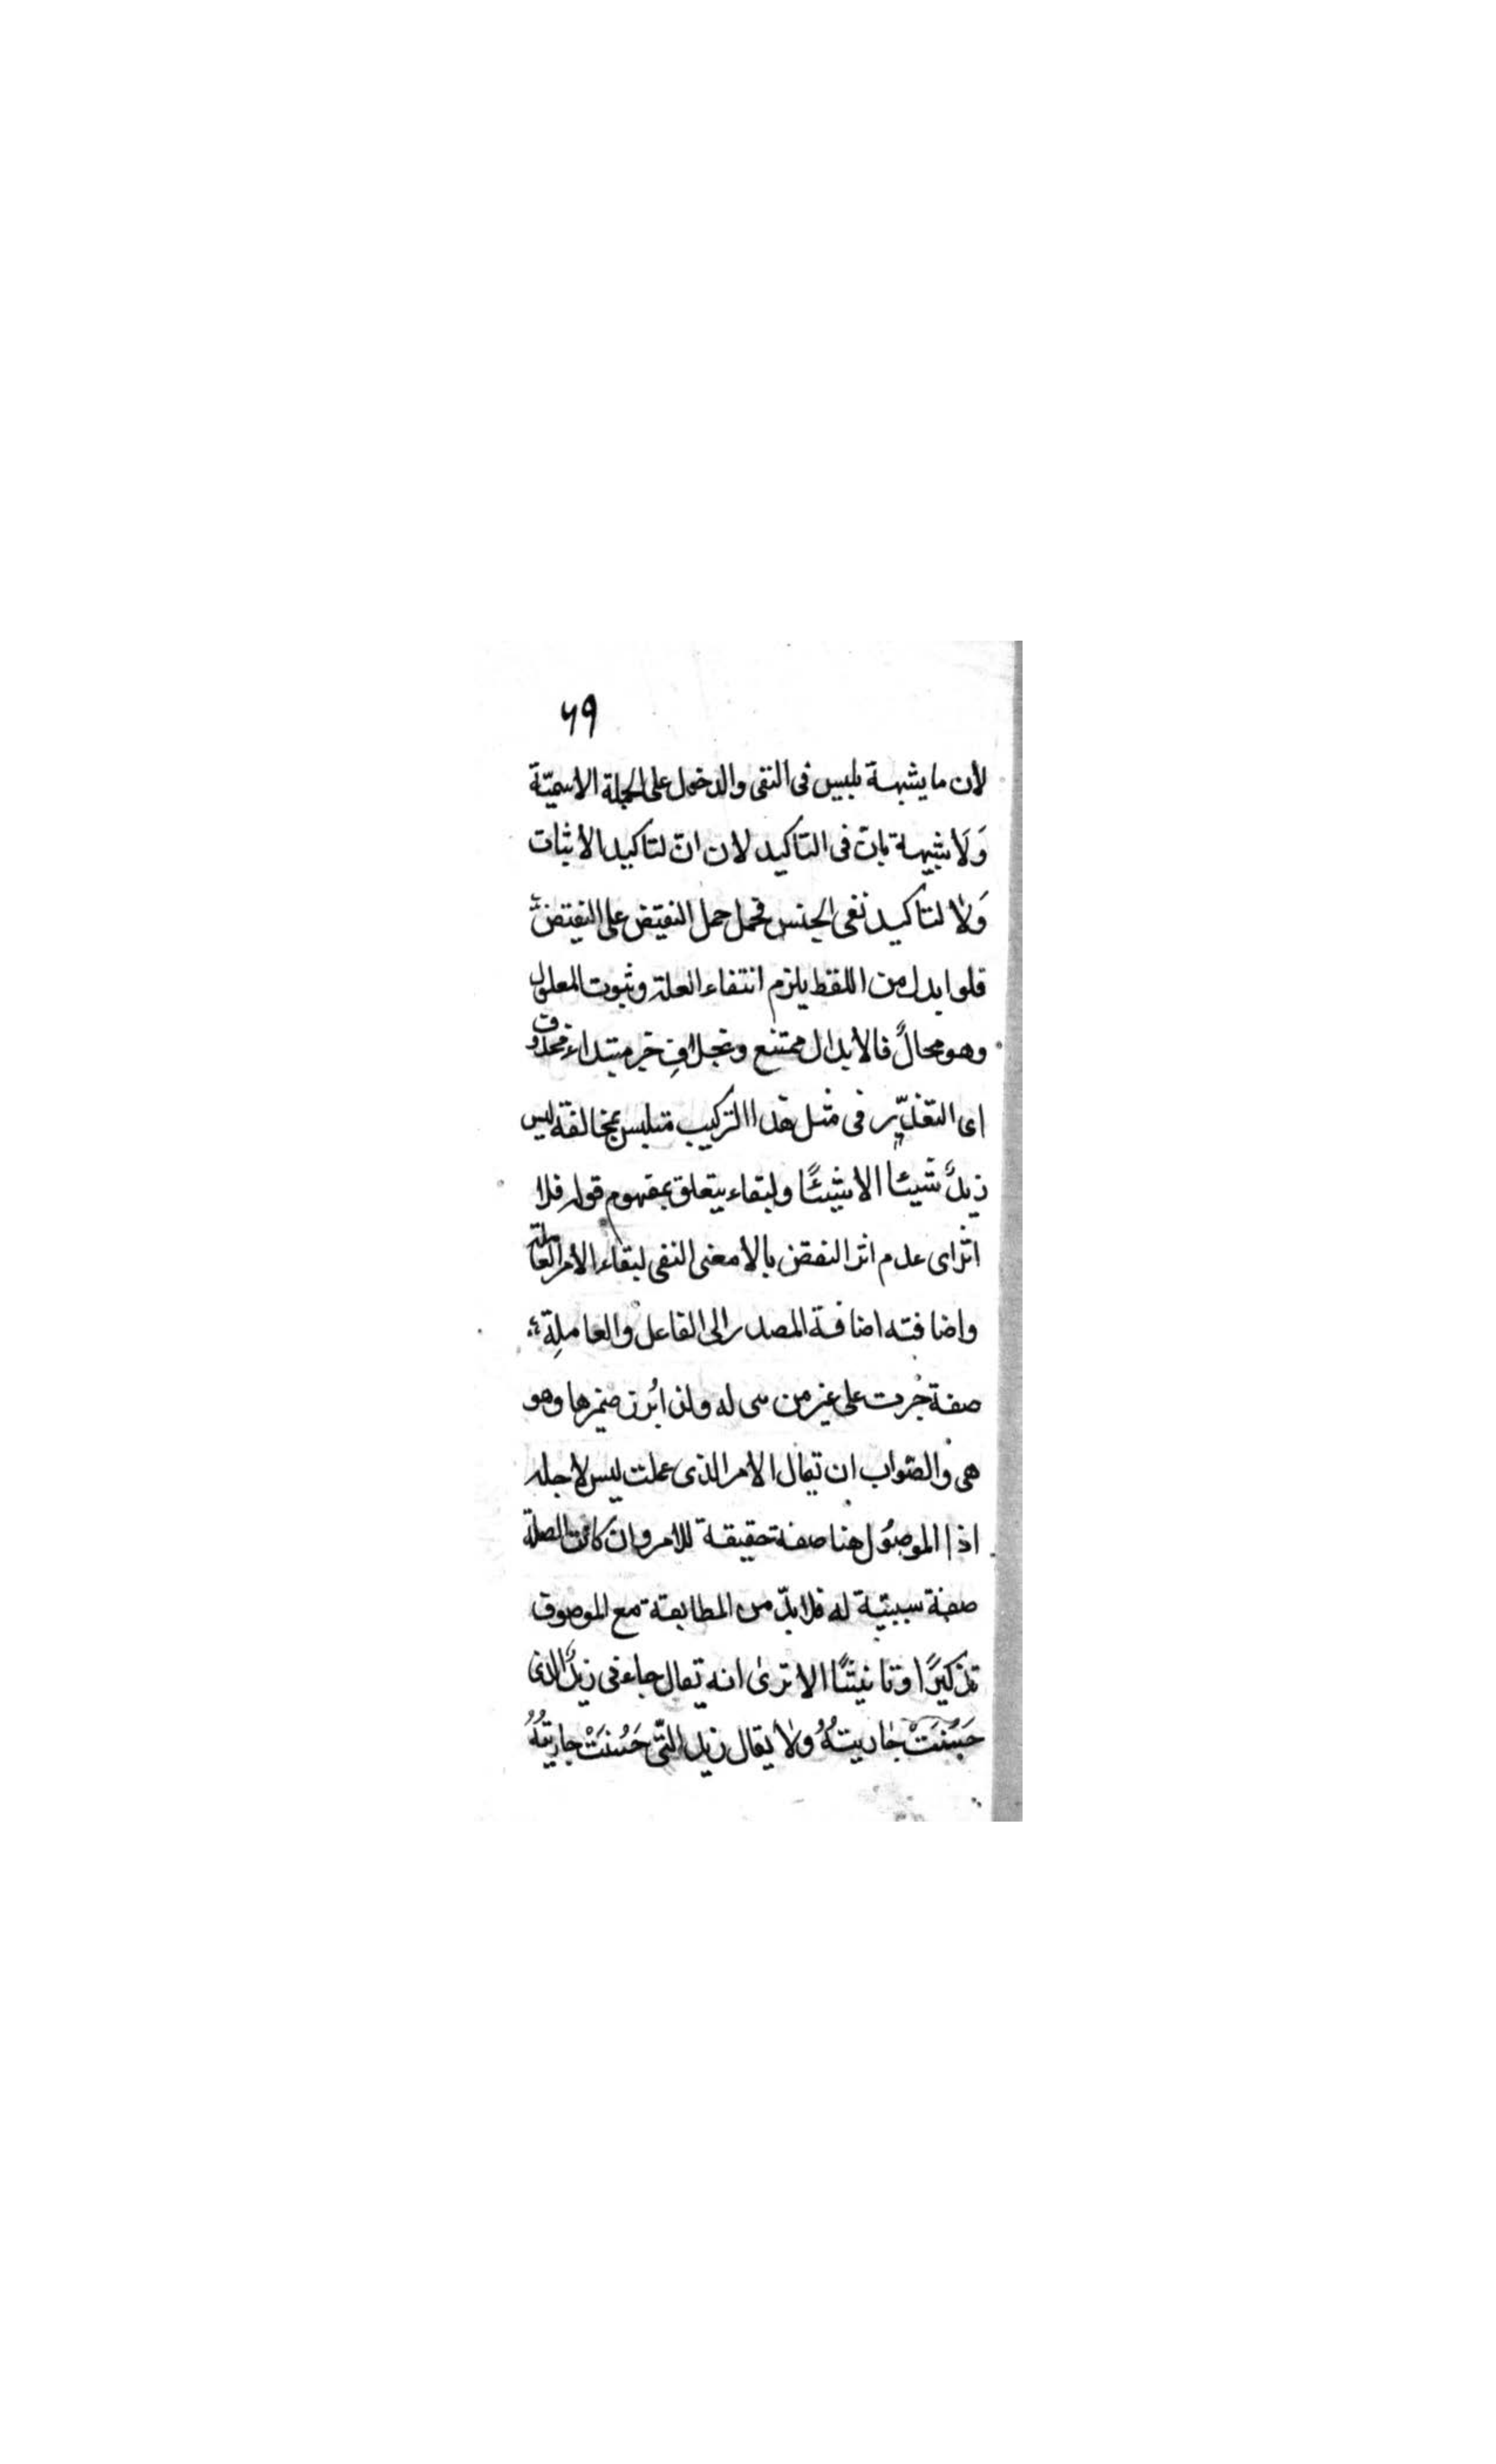 ۶۹
لأن ما يشبهة بليس فى النفى والدخول على الجملة الاسميّة
وَلَا شبيهة بانّ فى التاكيد لان انّ لتاكيد الاثبات
وَلَا لتاكيد نفى الجنس فحمل حمل النقيض على النقيض
فلو ابدل من اللفظ يلزم انتفاء العلة وثبوت المعلول
وهو محالٌ فالابدال ممتنع وبخلافِ خبر مبتداء محذوف
اى التقديّر فى مثل هذا التركيب متلبس بمخالفة ليس
زيدٌ شيئًا الا شيئًا ولبقاء يتعلق بمفهوم قوله فلا
اثر اى عدم اثر النقض بالا معنى النفى لبقاء الامر العاملة
واضافته اضافة المصدر الى الفاعل والعاملِة
صفة جُرت على غير من هى له ولذا ابُرز ضميرها وهو
هى والصّواب ان يقال الامر الذى عملت ليس لاجله
اذا الموصُول هنا صفة حقيقة للامر وان كانت الصلة
صفة سببيّة له فلا بدّ من المطابقة مع الموصوف
تذكيرًا وتانيثًا الا ترىٰ انه يقال جاءنى زيدٌ الذى
حَسُنَتْ جاريتهُ ولا يقال زيد التّى حَسُنَتْ جاريتُهُ